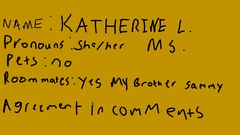 NAME: KATHERINE L.
Pronouns: She/her Ms.
Pets: no
Roommates: yes My Brother sammy
Agreement in comments